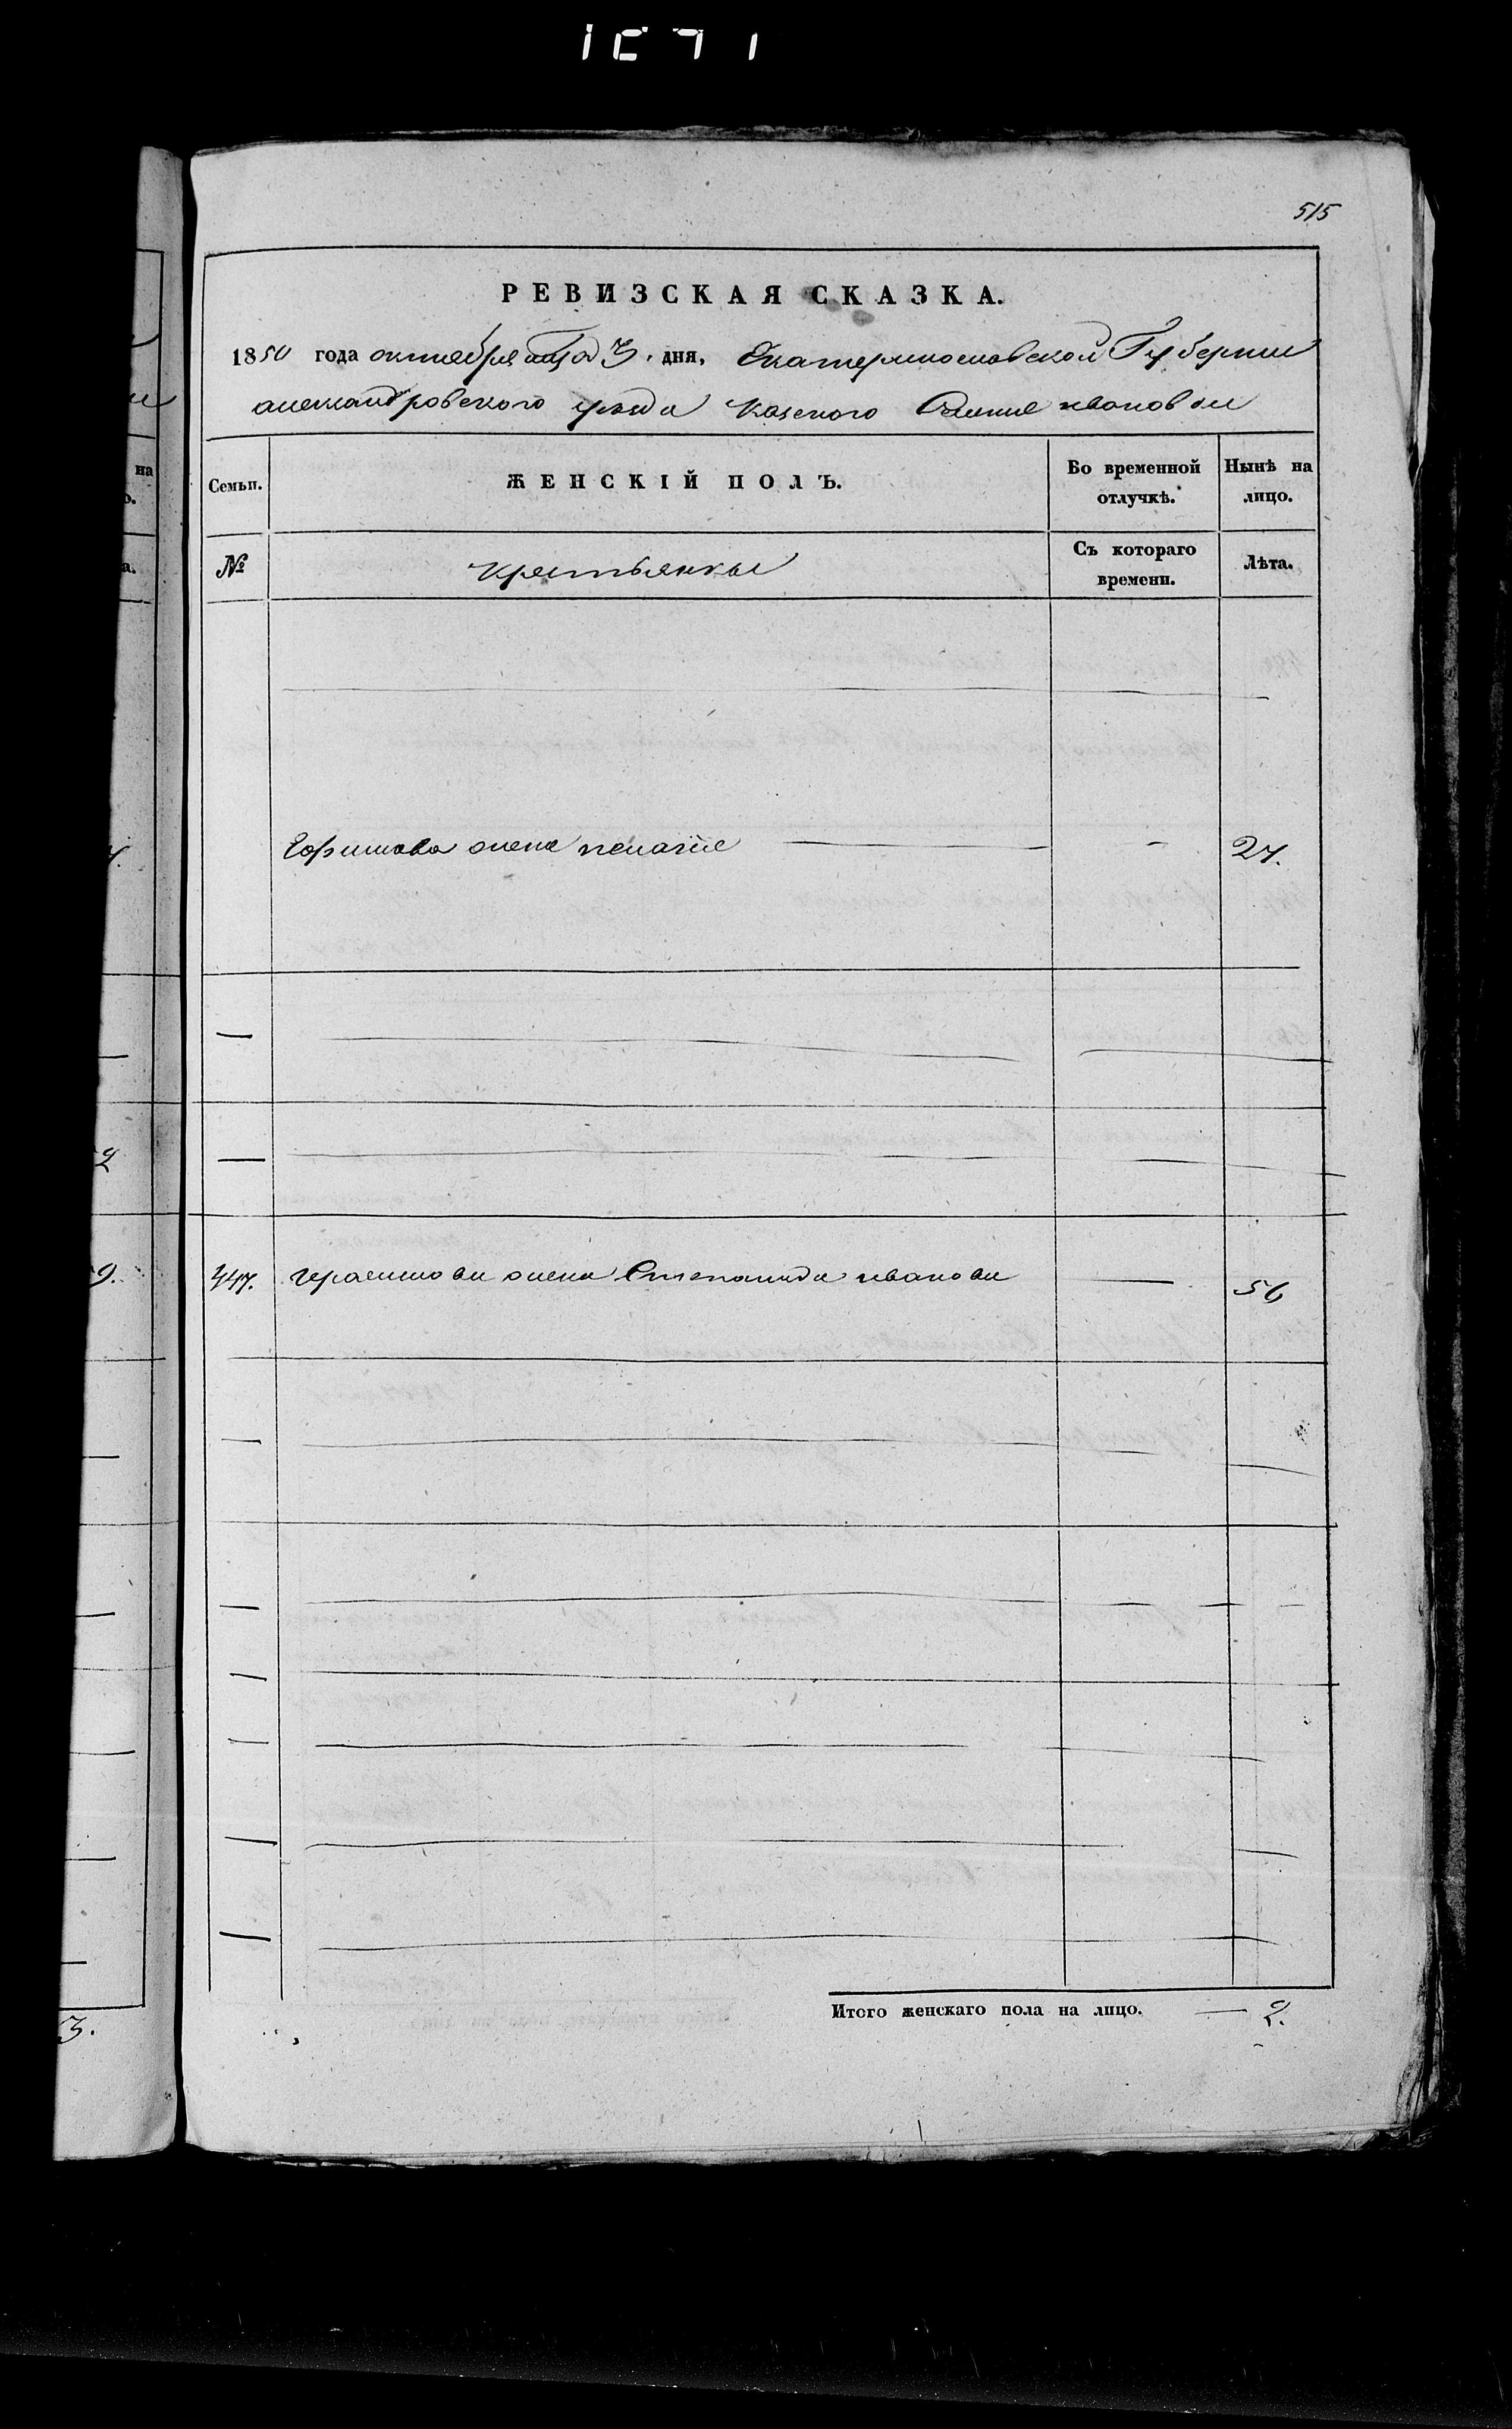 515
РЕВИЗСКАЯ СКАЗКА.
1850 года октября мца 3. дня, Екатеринославской Губернии
александровского уезда казеного Селения ивановки
Семьи. ЖЕНСКІЙ ПОЛЪ. Во временной отлучкѣ. Нынѣ на лицо.
№ крестьянки Съ котораго времени. Лѣта.
жена пелагия — - 27.
447. жена Степанида иванова — 56
Итого женскаго пола на лицо. — 2.
на
а.
2
9.
3.